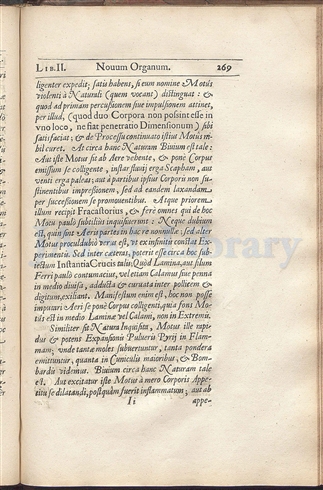 LIB. II. Nouum Organum. 269
ligenter expedit; satis habens, si eum nomine Motûs
violenti à Naturali (quem vocant) distinguat: &
quod ad primam percussionem siue impulsionem attinet,
per illud, (quod duo Corpora non possint esse in
vno loco, ne fiat penetratio Dimensionum) sibi
satisfaciat: & de Processu continuato istius Motus ni-
hil curet. At circa hanc Naturam Biuium est tale:
Aut iste Motus fit ab Aere vehente, & ponè Corpus
emissum se colligente, instar fluuij erga Scapham, aut
venti erga paleas; aut à partibus ipsius Corporis non su-
stinentibus impressionem, sed ad eandem laxandam
per successionem se promouentibus. Atque priorem
illum recipit Fracastorius, & ferè omnes qui de hoc
Motu paulò subtiliùs inquisiuerunt: Neque dubium
est, quin sint Aeris partes in hac re nonnullæ: sed alter
Motus proculdubiò verus est, vt ex infinitis constat Ex-
perimentis. Sed inter cæteras, poterit esse circa hoc sub-
iectum Instantia Crucis talis; Quòd Lamina, aut filum
Ferri paulò contumacius, vel etiam Calamus siue penna
in medio diuisa, adducta & curuata inter pollicem &
digitum, exiliant. Manifestum enim est, hoc non posse
imputari Aeri se ponè Corpus colligenti, quia fons Mo-
tûs est in medio Laminæ vel Calami, non in Extremis.
Similitèr sit Natura Inquisita, Motus ille rapi-
dus & potens Expansionis Pulueris Pyrij in Flam-
mam; vnde tantæ moles subuertuntur, tanta pondera
emittuntur, quanta in Cuniculis maioribus, & Bom-
bardis videmus. Biuium circa hanc Naturam tale
est. Aut excitatur iste Motus à mero Corporis Appe-
titu se dilatandi, postquam fuerit inflammatum; aut ab
Ii appe-